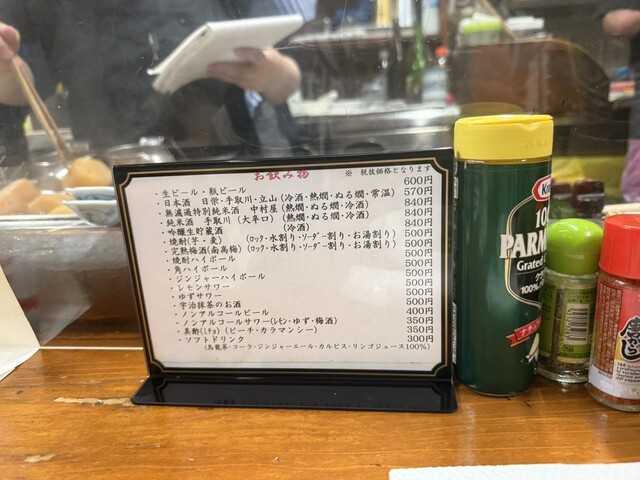 お飲み物
※ 税抜価格となります
・生ビール・瓶ビール 600円
・日本酒 日栄・手取川・立山(冷酒・熱燗・ぬる燗・常温) 570円
・無濾過特別純米酒 中村屋(熱燗・ぬる燗・冷酒) 840円
・純米酒 手取川(大卑口)(熱燗・ぬる燗・冷酒) 840円
・吟醸生貯蔵酒 (冷酒) 840円
・焼酎(芋・麦) (ロック・水割り・ソーダー割り・お湯割り) 500円
・完熟梅酒(南高梅) (ロック・水割り・ソーダー割り・お湯割り) 500円
・焼酎ハイボール 500円
・角ハイボール 500円
・ジンジャーハイボール 500円
・レモンサワー 500円
・ゆずサワー 500円
・宇治抹茶のお酒 500円
・ノンアルコールビール 400円
・ノンアルコールサワー(レモン・ゆず・梅酒) 350円
・美酢(ミチョ)(ピーチ・カラマンシー) 350円
・ソフトドリンク 300円
(烏龍茶・コーラ・ジンジャーエール・カルピス・リンゴジュース100%)
Kra
100
PARM
Grated
100%